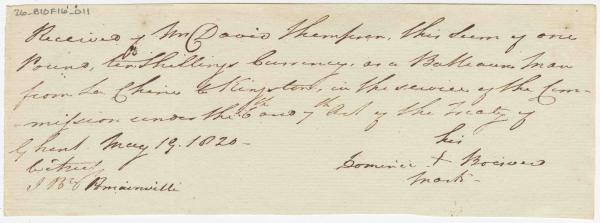 26_B10F16_011
Received of Mr David Thompson, this Sum of one
Pound, ten Shillings Currency, as a Batteaux man
from La Chine to Kingston, in the service of the Com-
mission under the 6th and 7th Art of the Treaty of
Ghent May 19. 1820-
his
Witness
Dominic + Boisver
J Bte Rmainville
mark-